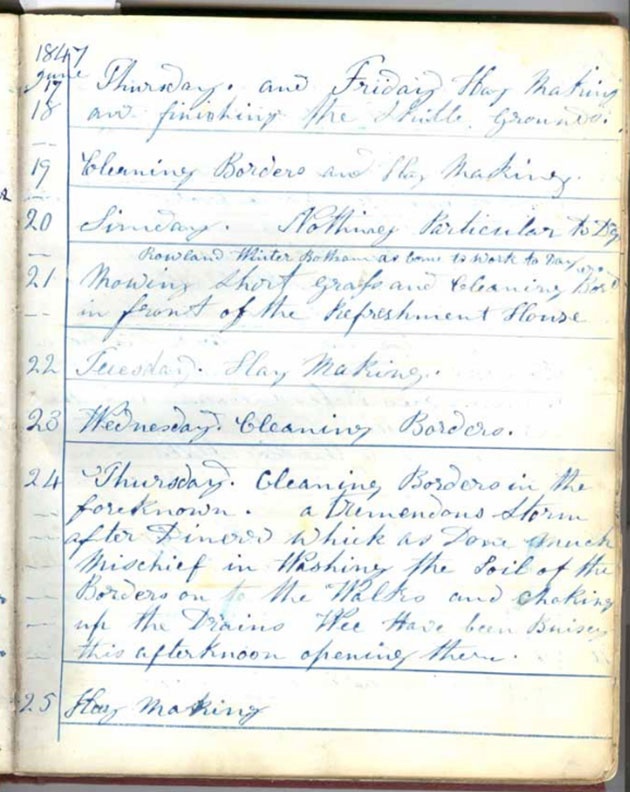 1847
June
17 Thursday. and Friday Hay Making
18 and finishing the Skittle Grounds.
19 Cleaning Borders and Hay Making.
20 Sunday. Nothing Particular to Day
Rowland Winter Botham as Come to Work to Day
21 Mowing Short Grass and Cleaning Bord
in front of the Refreshment House
22 Tuesday. Hay Making.
23 Wednesday. Cleaning Borders.
24 Thursday. Cleaning Borders in the
foreknown. a Tremendous Storm
after Dinered which as Done much
Mischief in Washing the Soil of the
Borders on to the Walks and choking
up the Drains Wee Have been Buisey
this afterknoon opening them.
25 Hay Making